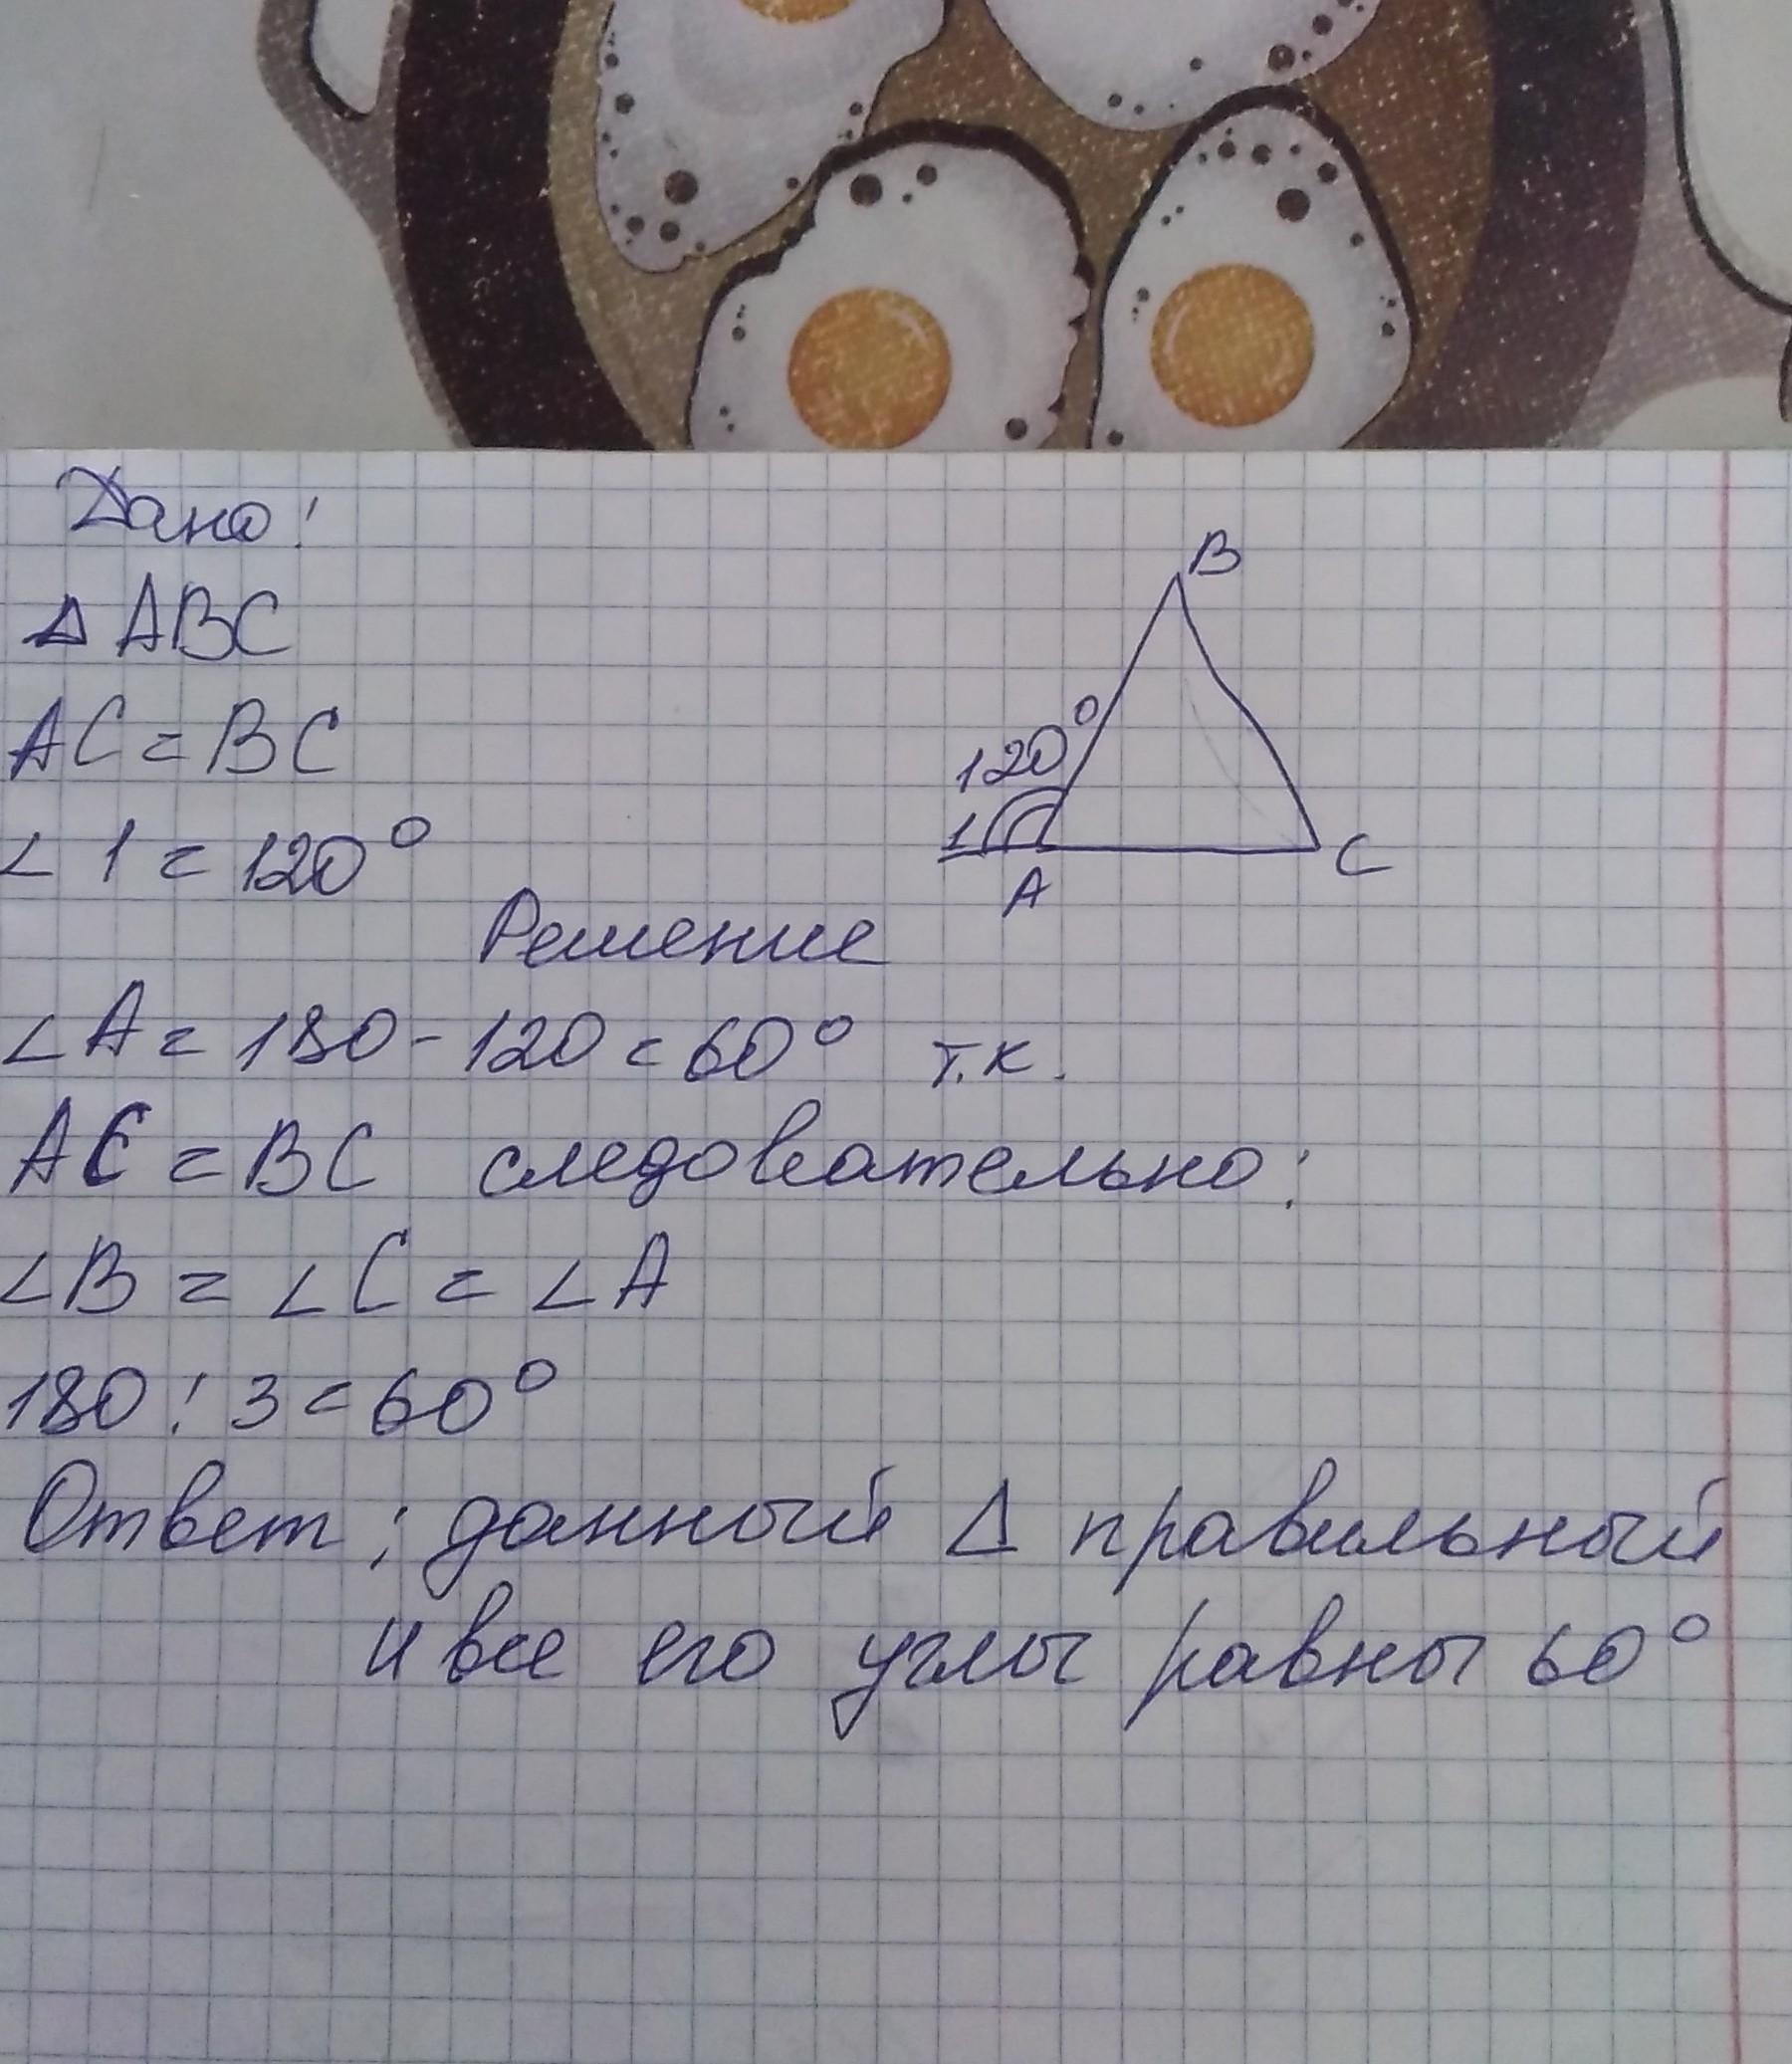 Дано:
Δ ABC
AC = BC
∠1 = 120°
B
120°
1
A
C
Решение
∠A = 180 - 120 = 60° т.к.
AC = BC следовательно:
∠B = ∠C = ∠A
180 : 3 = 60°
Ответ: данный Δ правильный
и все его углы равны 60°